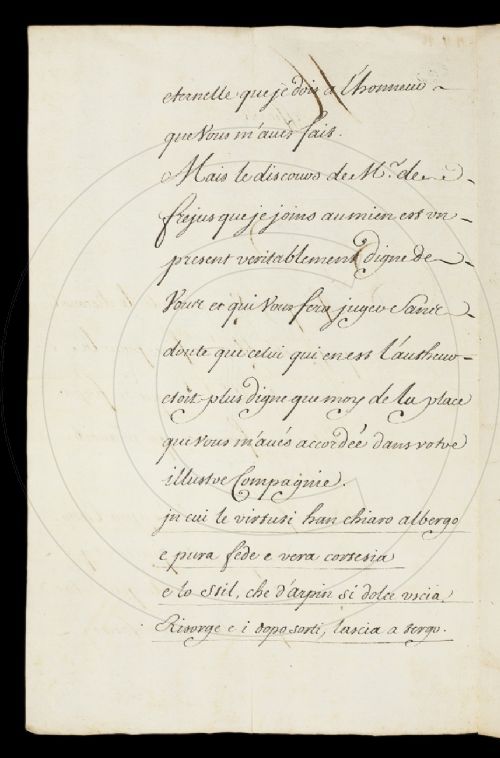 eternelle que je dois a l'honneur
que vous m'aués fait.
Mais le discours de Mr. de
frejus que je joins au mien est vn
present veritablement digne de
vous et qui vous fera juger sans
doute que celui qui en est l'autheur
etoit plus digne que moy de la place
que vous m'aués accordée dans votre
illustre Compagnie.
jn cui le virtusi han chiaro albergo
e pura fede e vera cortesia
e lo stil, che d'arpin si dolce vscia
Risorge e i dopo sorti, lascia a tergo.